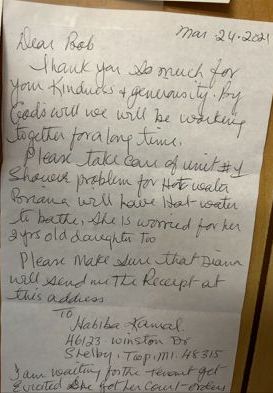 Mar. 24. 2021
Dear Bob
Thank you so much for
your Kindness & generosity. By
Gods will we will be working
together for a long time.
Please take care of unit #1
Shower problem for Hot water
Briana will have Hot water
to bathe. She is worried for her
2 yrs old daughter too
Please Make sure that Diana
will send me the Receipt at
this address
TO
Habiba Kamal
46123 Winston Dr
Shelby. Twp, MI. 48315
I am waiting for the tenant get
Evicted She got her court orders